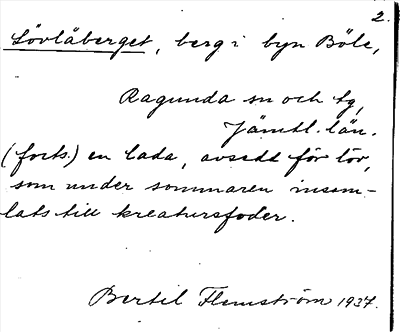 2.
Lövlåberget, berg i byn Böle,
Ragunda sn och tg,
Jämtl. län.
(forts.) en lada, avsedd för löv,
som under sommaren insam-
lats till kreatursfoder.
Bertil Flemström 1937.